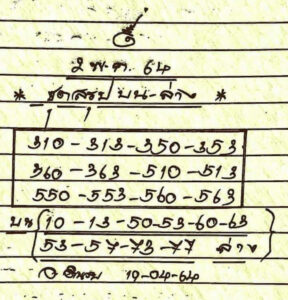 2 พ.ค. 64
* ชุดสรุป บน-ล่าง *
310-313-350-353
360-363-510-513
550-553-560-563
บน (10-13-50-53-60-63)
(53-57-73-77) ล่าง
19-04-64